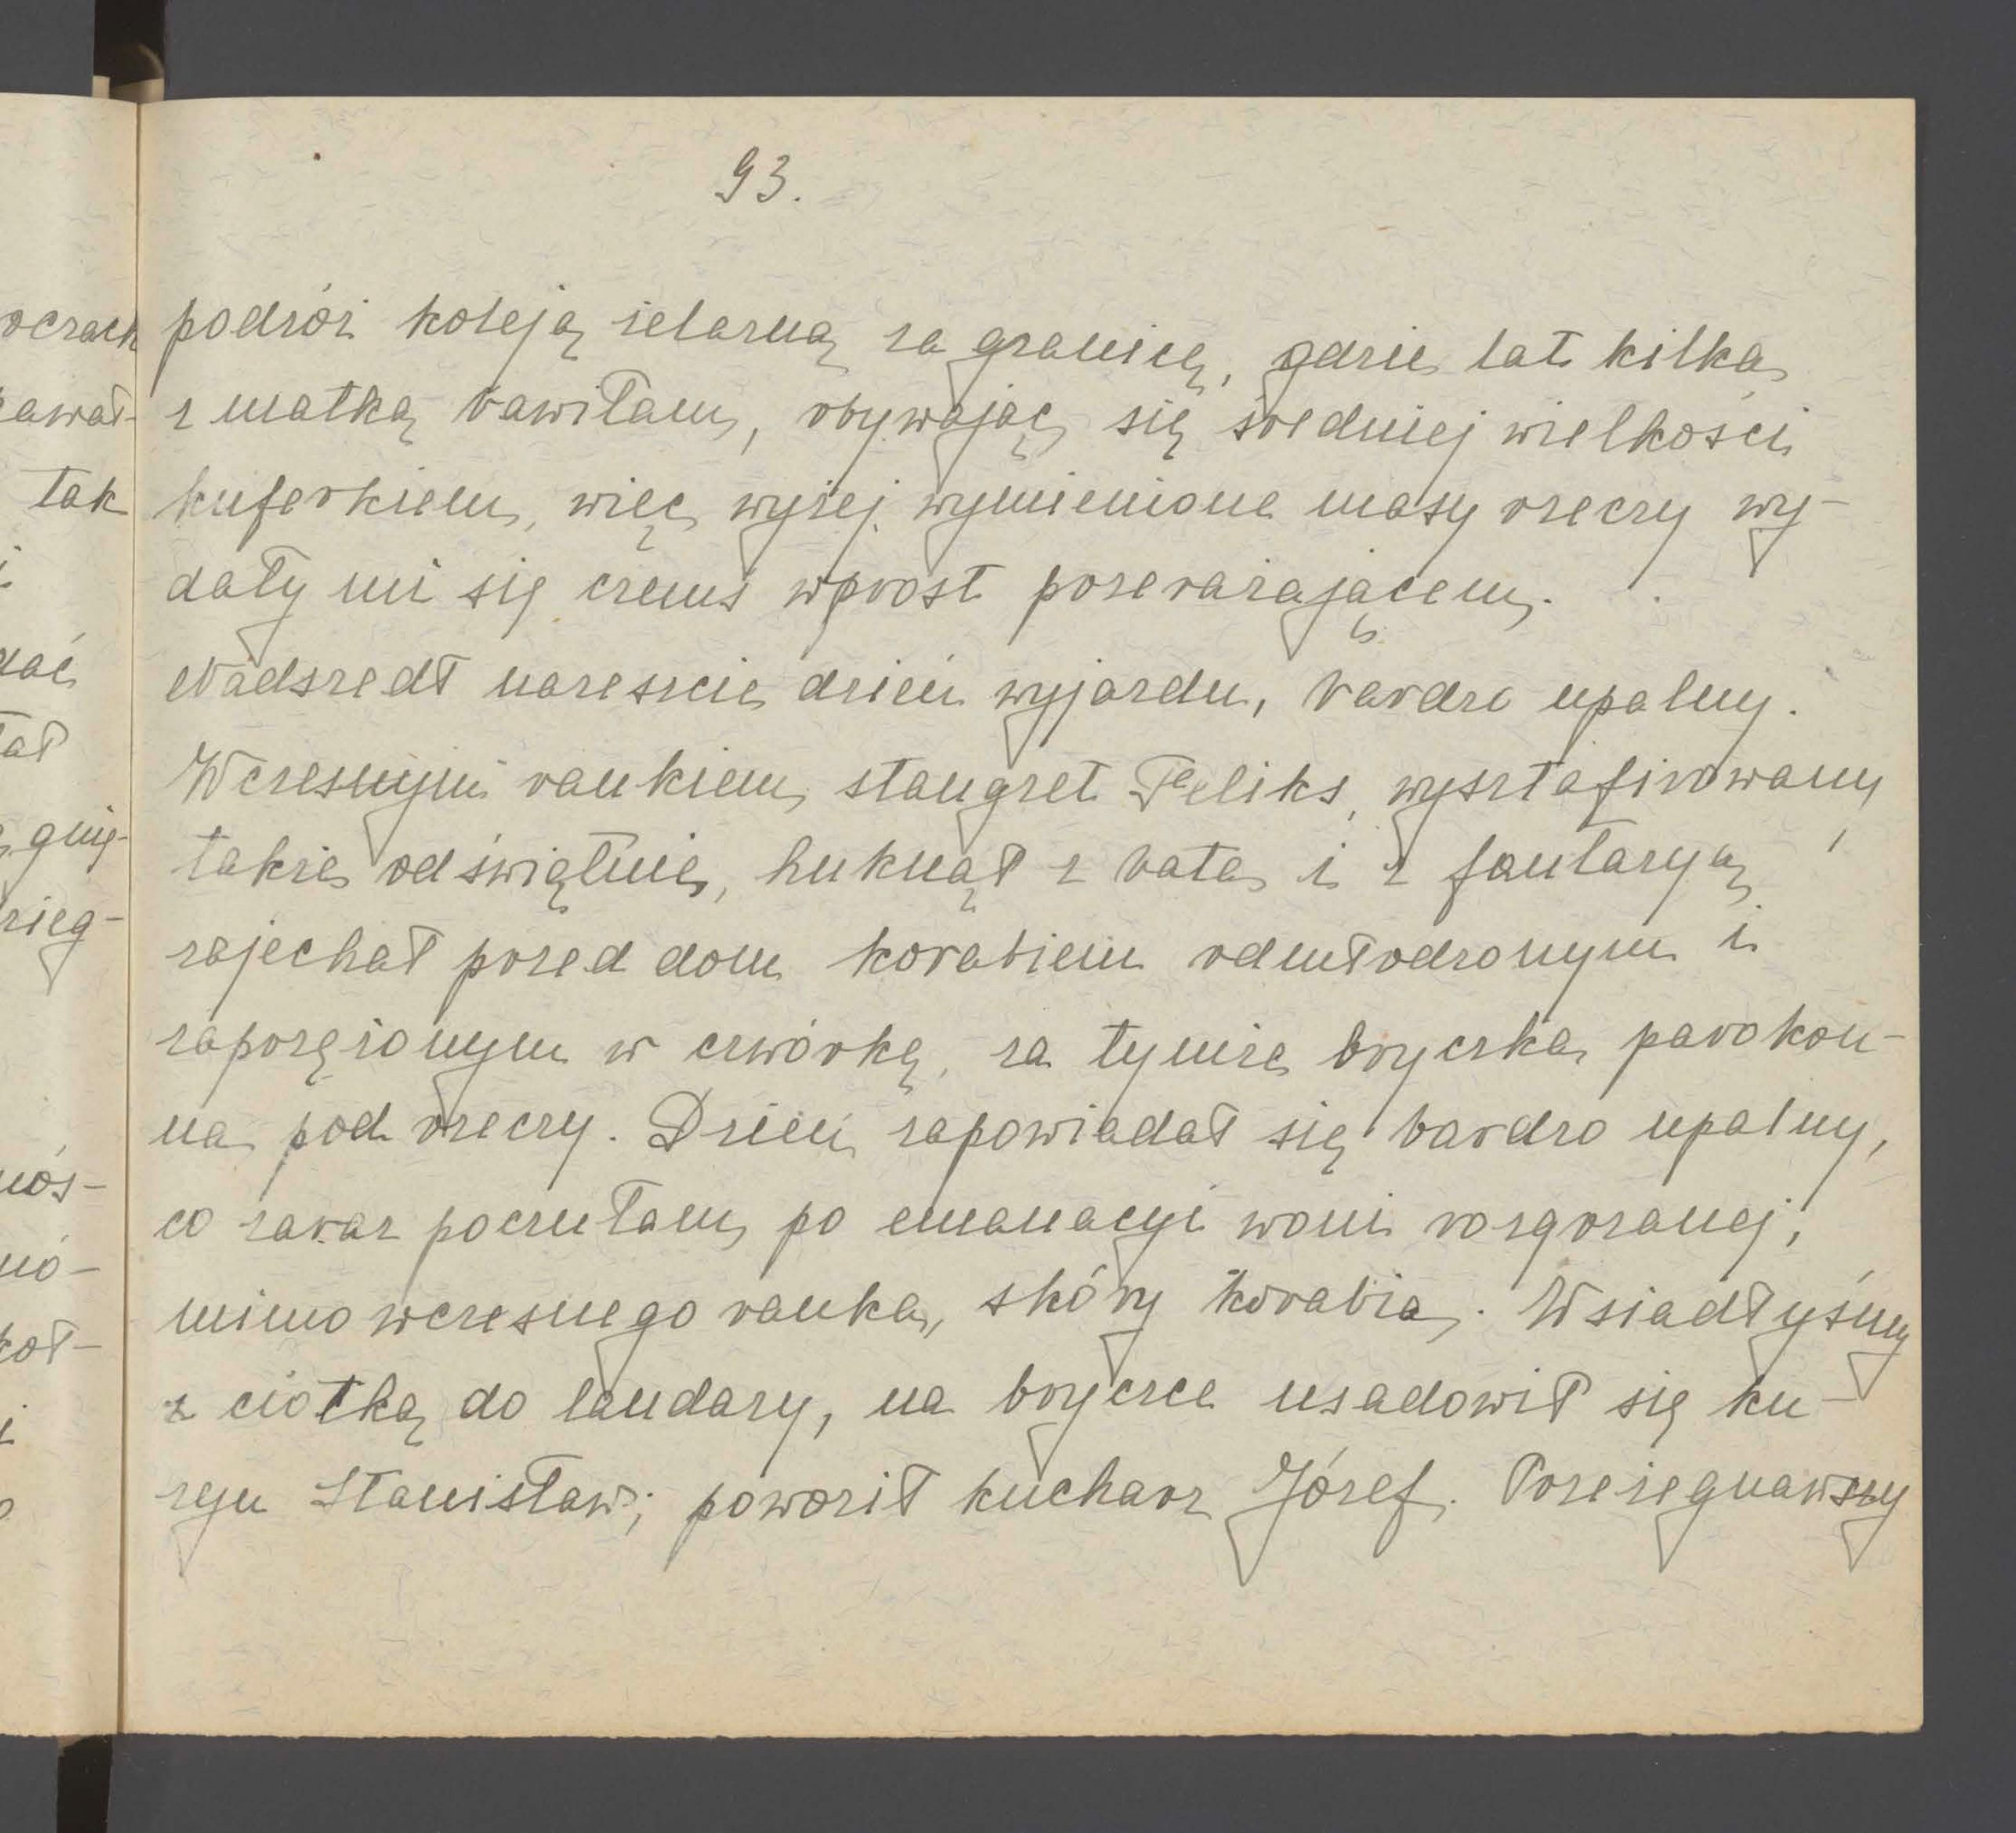 93.
podróż koleją żelazną za granicę, gdzie lat kilka
z matką bawiłam, obywając się średniej wielkości
kuferkiem, więc wyżej wymienione masy rzeczy wy-
dały mi się czemś wprost przerażającem.
Nadszedł nareszcie dzień wyjazdu, bardzo upalny.
Wczesnym rankiem, stangret Feliks, wysztafirowany
także odświętnie, huknął z bata i z fantazyą,
zajechał przed dom korabiem odmłodzonym i
zaprzężonym w czwórkę, za tymże bryczka parokon-
na pod rzeczy. Dzień zapowiadał się bardzo upalny,
co zaraz poczułam po emanacyi woni rozgrzanej,
mimo wczesnego ranka, skóry korabia. Wsiadłyśmy
z ciotką do landary, na bryczce usadowił się ku-
zyn Stanisław; powoził kucharz Józef. Przeżegnawszy